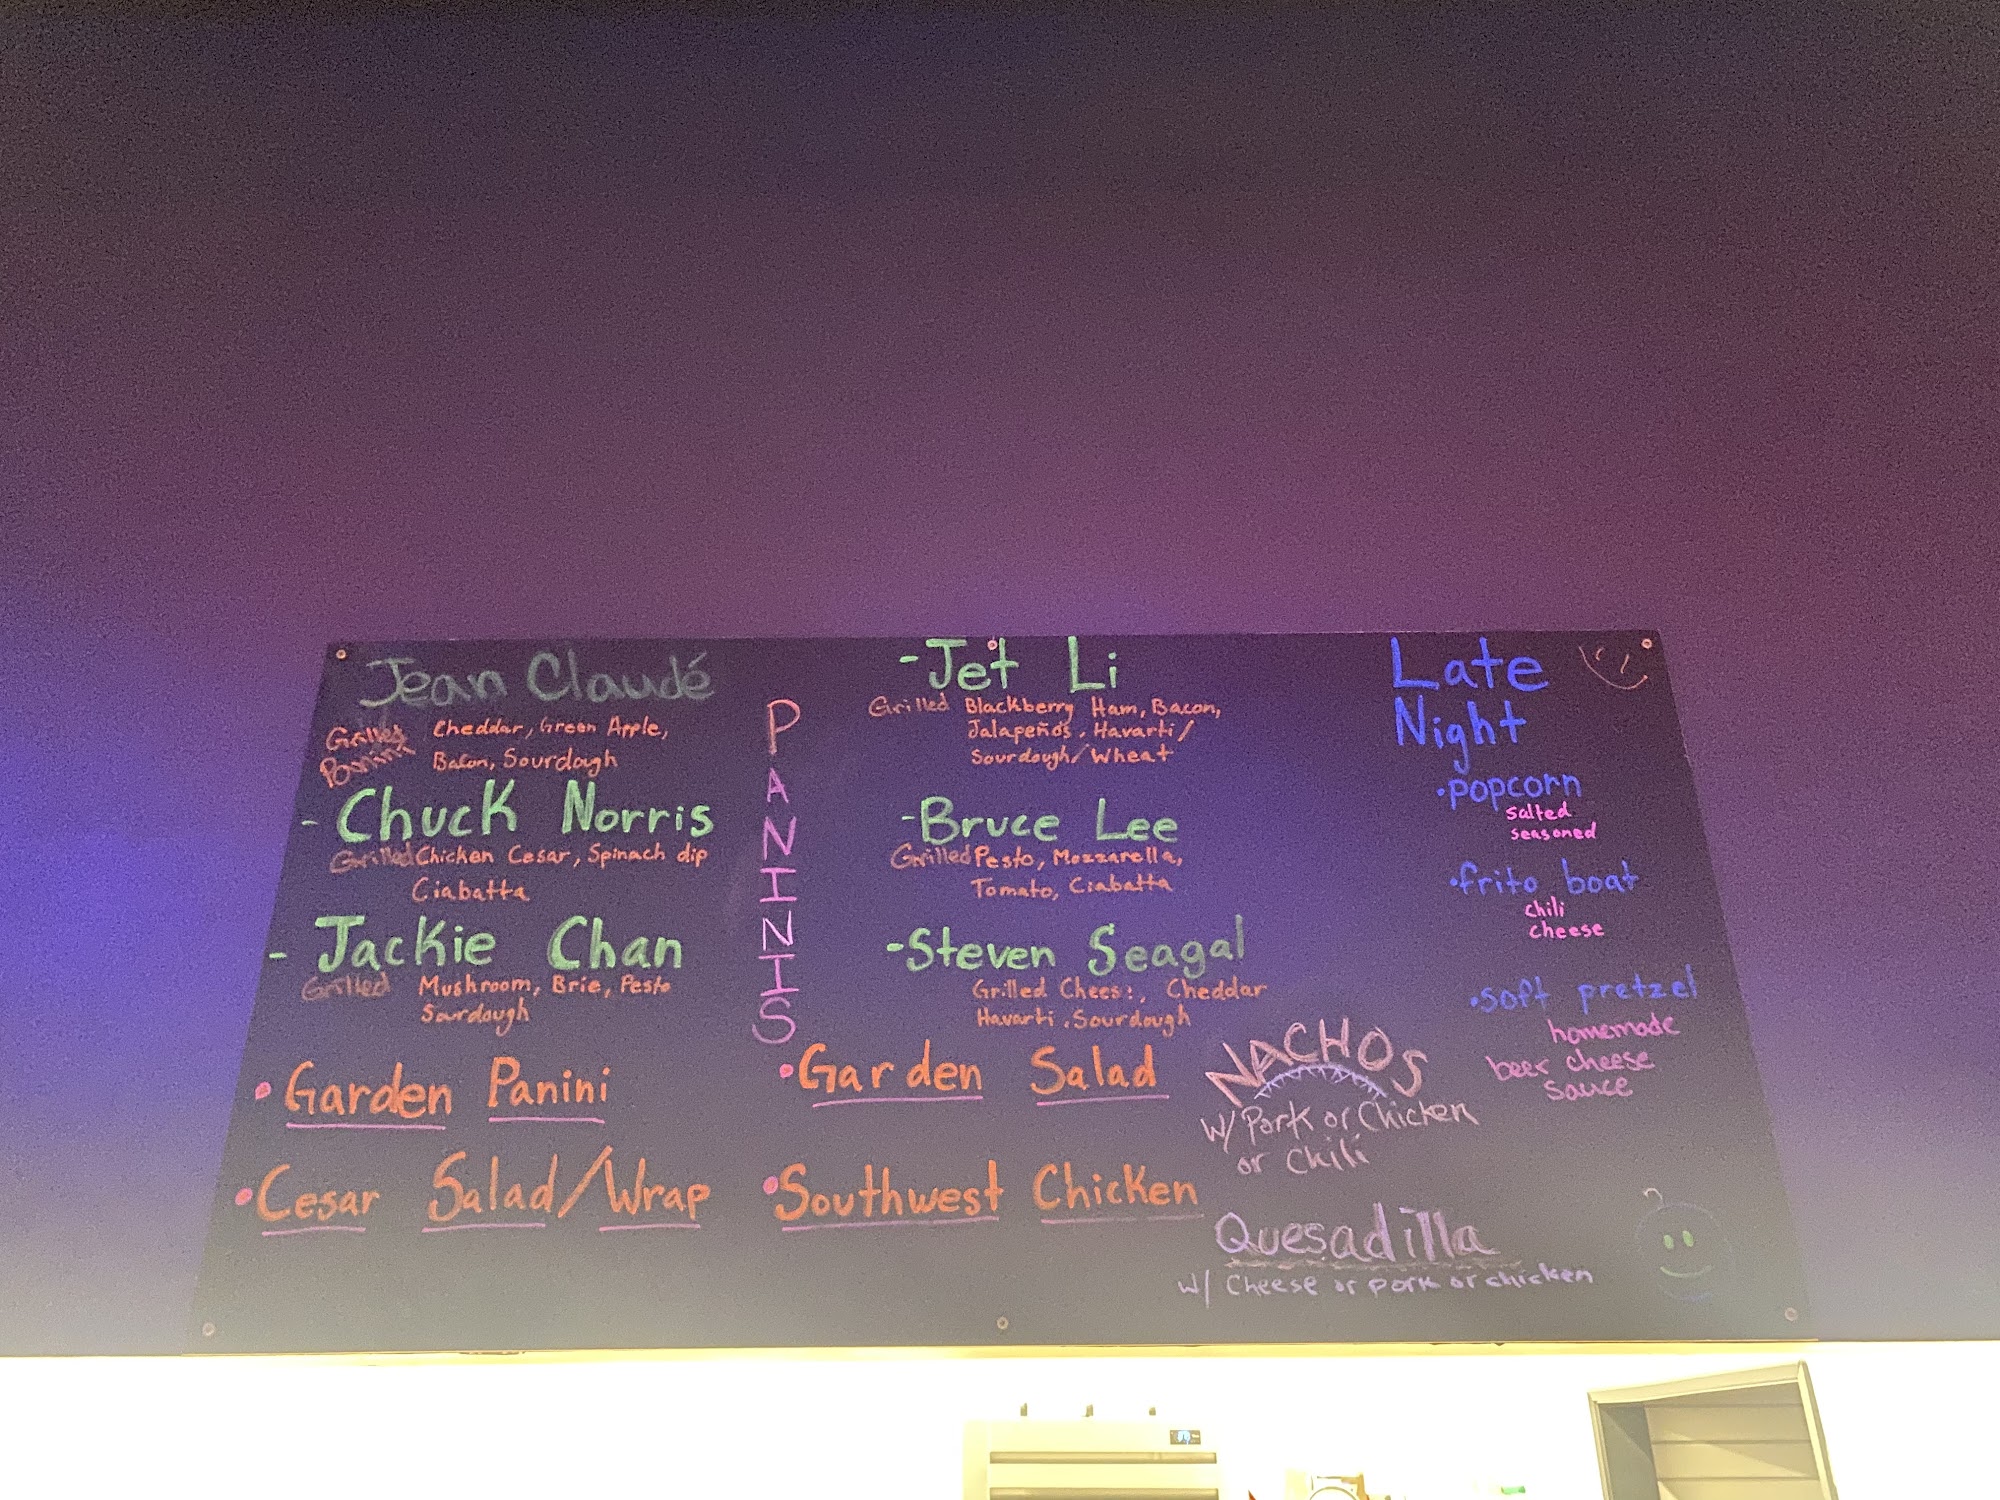 Jean Claudé
Grilled Panini
Cheddar, Green Apple,
Bacon, Sourdough
- Chuck Norris
Grilled Chicken Cesar, Spinach dip
Ciabatta
- Jackie Chan
Grilled Mushroom, Brie, Pesto
Sourdough
• Garden Panini
• Cesar Salad/Wrap
PANINIS
- Jet Li
Grilled Blackberry Ham, Bacon,
Jalapeños, Havarti/
Sourdough/Wheat
- Bruce Lee
Grilled Pesto, Mozzarella,
Tomato, Ciabatta
- Steven Seagal
Grilled Cheese, Cheddar
Havarti, Sourdough
• Garden Salad
• Southwest Chicken
NACHOS
w/ Pork or Chicken
or Chili
Quesadilla
w/ Cheese or pork or chicken
Late
Night
• popcorn
salted
seasoned
• frito boat
chili
cheese
• soft pretzel
homemade
beer cheese
sauce